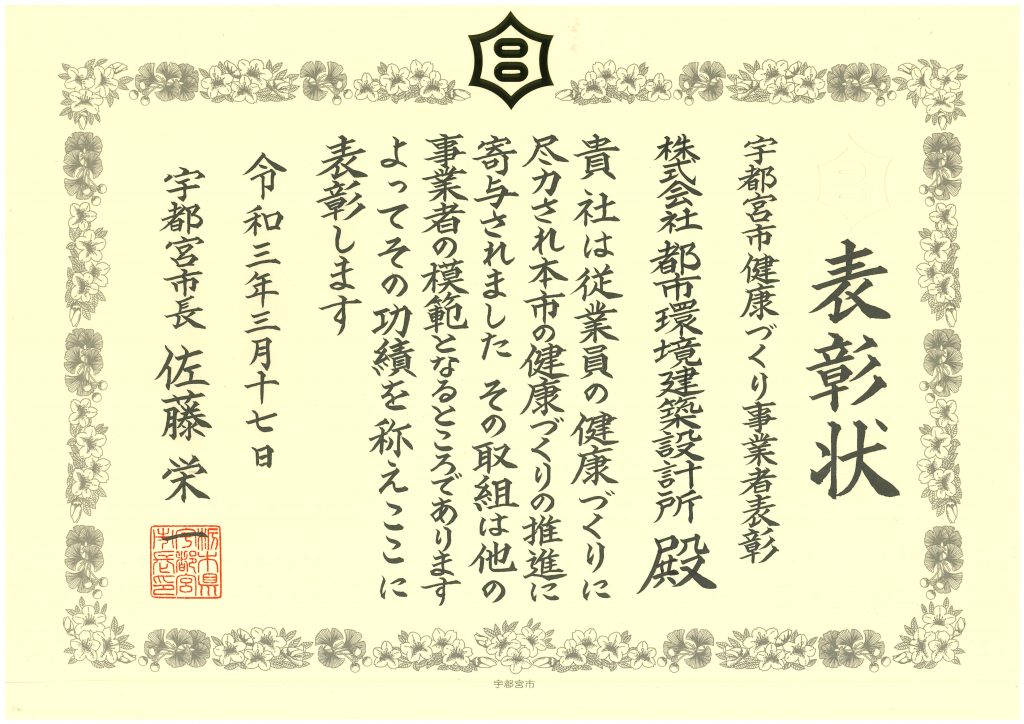 表彰状
宇都宮市健康づくり事業者表彰
株式会社 都市環境建築設計所 殿
貴社は従業員の健康づくりに
尽力され本市の健康づくりの推進に
寄与されました その取組は他の
事業者の模範となるところであります
よってその功績を称えここに
表彰します
令和三年三月十七日
宇都宮市長 佐藤栄一
栃木県
宇都宮
市長印
宇都宮市